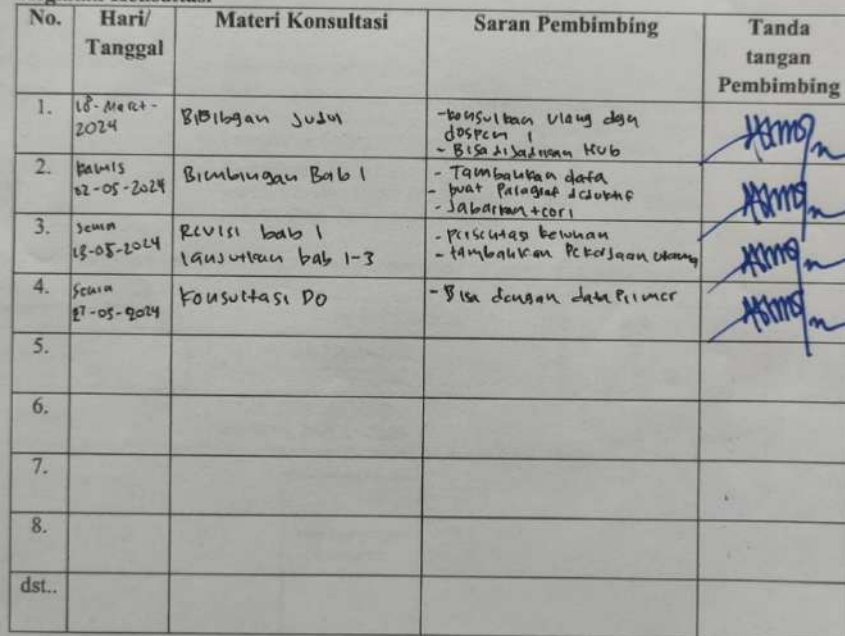 No.
Hari/
Tanggal
Materi Konsultasi
Saran Pembimbing
Tanda
tangan
Pembimbing
1.
18-Maret-
2024
Judul
-konsultkan ulang dgn
dospem 1
- Bisa dijadikan Hub
2.
Kamis
02-05-2024
Bimbingan Bab 1
- Tambahkan data
- buat Paragraf deduktif
- Jabarkan teori
3.
Senin
13-05-2024
Revisi bab 1
lanjutkan bab 1-3
- keluhan
- tambahkan Pekerjaan
4.
Senin
27-05-2024
Konsultasi DO
- Bisa dengan data Primer
5.
6.
7.
8.
dst..